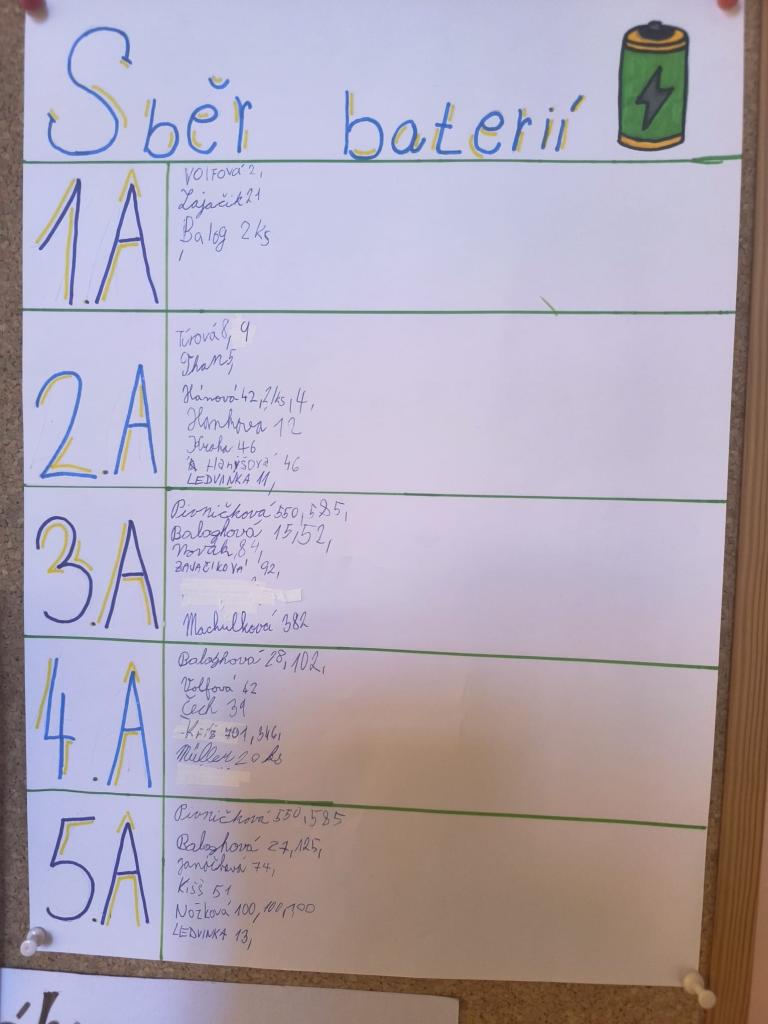 Sběr baterií
1.A
Volfová 2,
Zajačik 21
Balog 2 ks
2.A
Tírová 8, 9
Than 5,
Hánová 42, 21ks, 4,
Honkova 12
Kraha 46
Hanyšová 46
LEDVINKA 11,
3.A
Pivničková 550, 585,
Balaghová 15, 52,
Novák, 84,
ZAJAČIKOVÁ 92,
Machulková 382
4.A
Balaghová 28, 102,
Volfová 42
Čech 39
Kišš 701, 346,
Müller 20 ks
5.A
Pivničková 550, 585
Balaghová 27, 125,
Janáčková 74,
Kišš 51
Nožková 100, 100, 100
LEDVINKA 13,